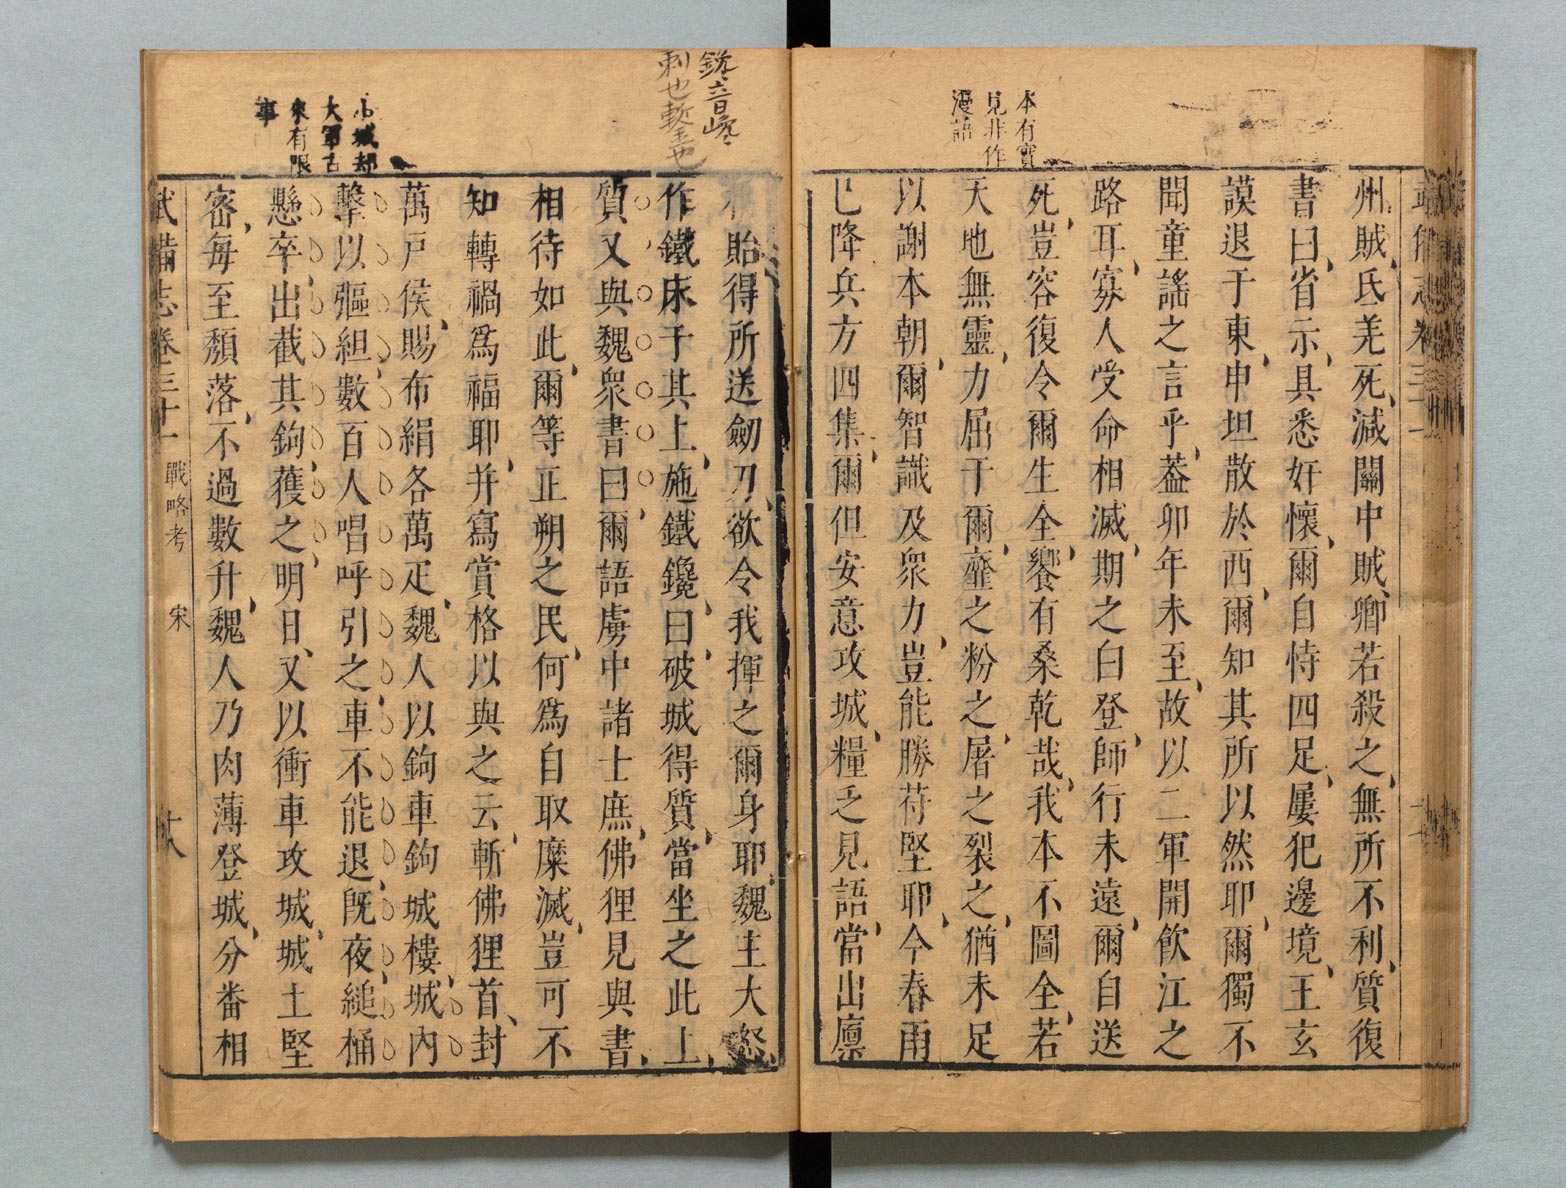 本有實
見非作
漫語
州賊氐羌死減關中賊卿若殺之無所不利質復
書曰省示具悉奸懷爾自恃四足屢犯邊境王玄
謨退于東申坦散於西爾知其所以然耶爾獨不
聞童謠之言乎葢卯年未至故以二軍開飲江之
路耳寡人受命相滅期之白登師行未遠爾自送
死豈容復令爾生全饗有桑乾哉我本不圖全若
天地無靈力屈于爾虀之粉之屠之裂之猶未足
以謝本朝爾智識及衆力豈能勝苻堅耶今春雨
已降兵方四集爾但安意攻城糧乏見語當出廩
鑱音巉
刺也鏨也
相貽得所送劒刀欲令我揮之爾身耶魏主大怒
作鐵床于其上施鐵鑱曰破城得質當坐之此上
質又與魏衆書曰爾語虜中諸士庶佛狸見與書
相待如此爾等正朔之民何爲自取糜滅豈可不
知轉禍爲福耶并寫賞格以與之云斬佛狸首封
萬戸侯賜布絹各萬疋魏人以鉤車鉤城樓城內
擊以彄絙數百人唱呼引之車不能退既夜縋桶
懸卒出截其鉤獲之明日又以衝車攻城城土堅
密每至頽落不過數升魏人乃肉薄登城分畨相
小城却
大軍古
來有限
事
武備志卷三十一 戰略考 宋 十八